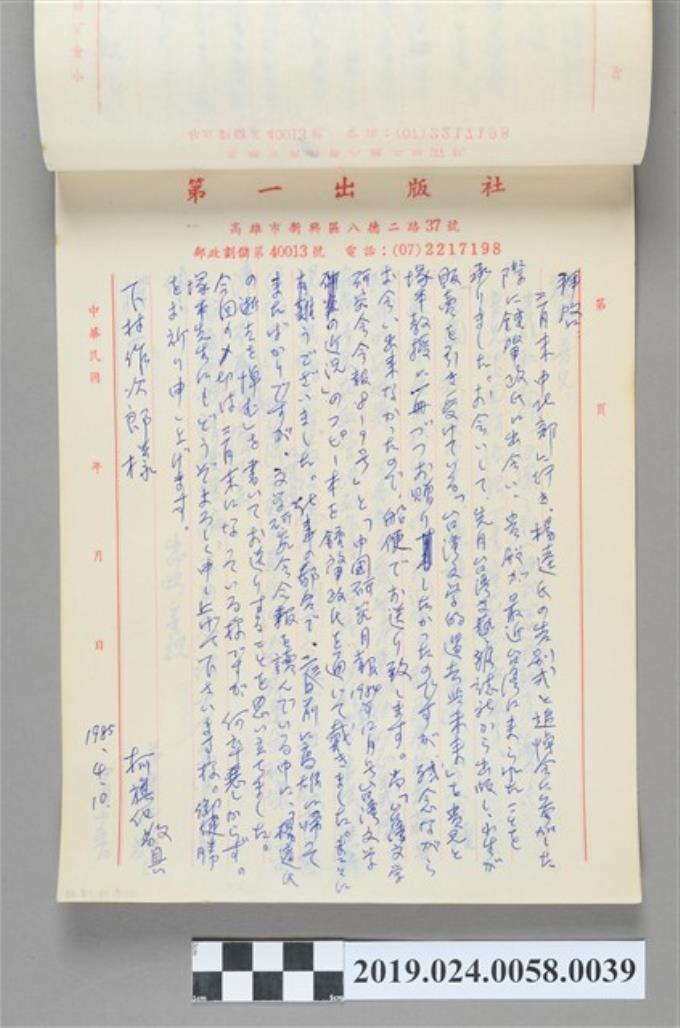 第一出版社
高雄市新興區八德二路37號
郵政劃撥第40013號 電話:(07)2217198
第 頁
拝啓、
三月末中北部に行き、楊逵氏の告別式と追悼会に参加した
際に鍾肇政氏に出会い、貴殿が最近台湾に来られたことを
承りました。お会いして、先月台湾文藝雑誌社から出版し、小生が
販売を引き受けている「台湾文学的過去与未来」を貴兄と
塚本教授に一冊づつお贈りしたかったのですが、残念ながら
お会い出来なかったので、船便でお送り致します。尚「台湾文学
研究会会報8-9号」と「中国研究月報1984年12月号台湾文学
研究の近況」のコピー本を鍾肇政氏を通いて戴きました。まことに
有難うございました。仕事の都合で、二、三日前に高雄に帰って
きたばかりですが、文学研究会会報を読んでいる中に、「楊逵氏
の逝去を悼む」を書いてお送りすることを思い立ちました。
今回の〆切は三月末になっている様ですが、何卒悪しからず。
塚本先生にもどうぞよろしく申し上げて下さいます様。御健勝
をお祈り申し上げます。
下村作次郎様
柯旗化 敬具
1985.4.10.
中華民國 年 月 日
2019.024.0058.0039